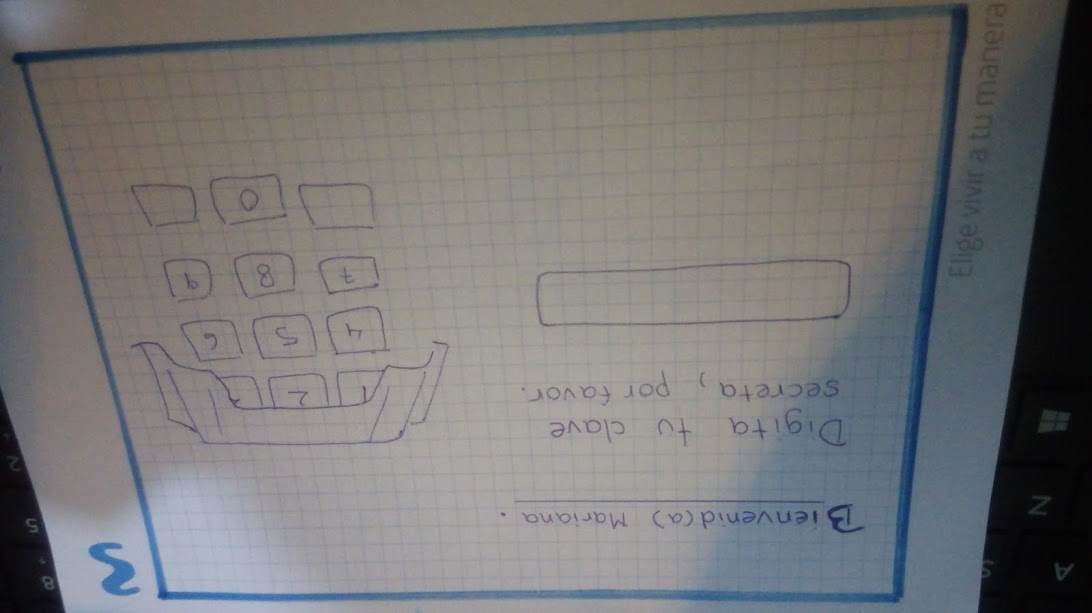 3
Bienvenid(a) Mariana.
Digita tu clave
secreta, por favor.
1 2
4 5 6
7 8 9
0
Elige vivir a tu manera
A
N
8
5
2